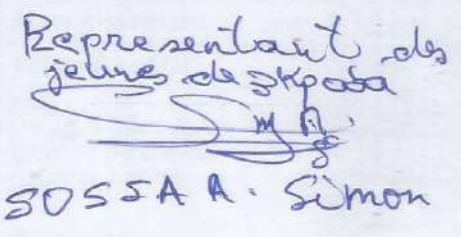 Representant des
jeunes de Ekpota
SOSSA A. Simon